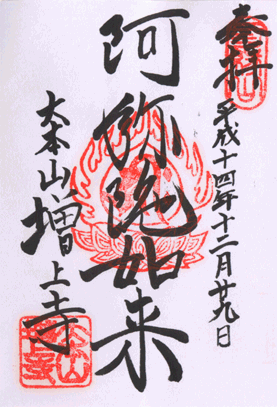 奉拝
平成十四年十二月廿九日
阿弥陀如来
大本山増上寺